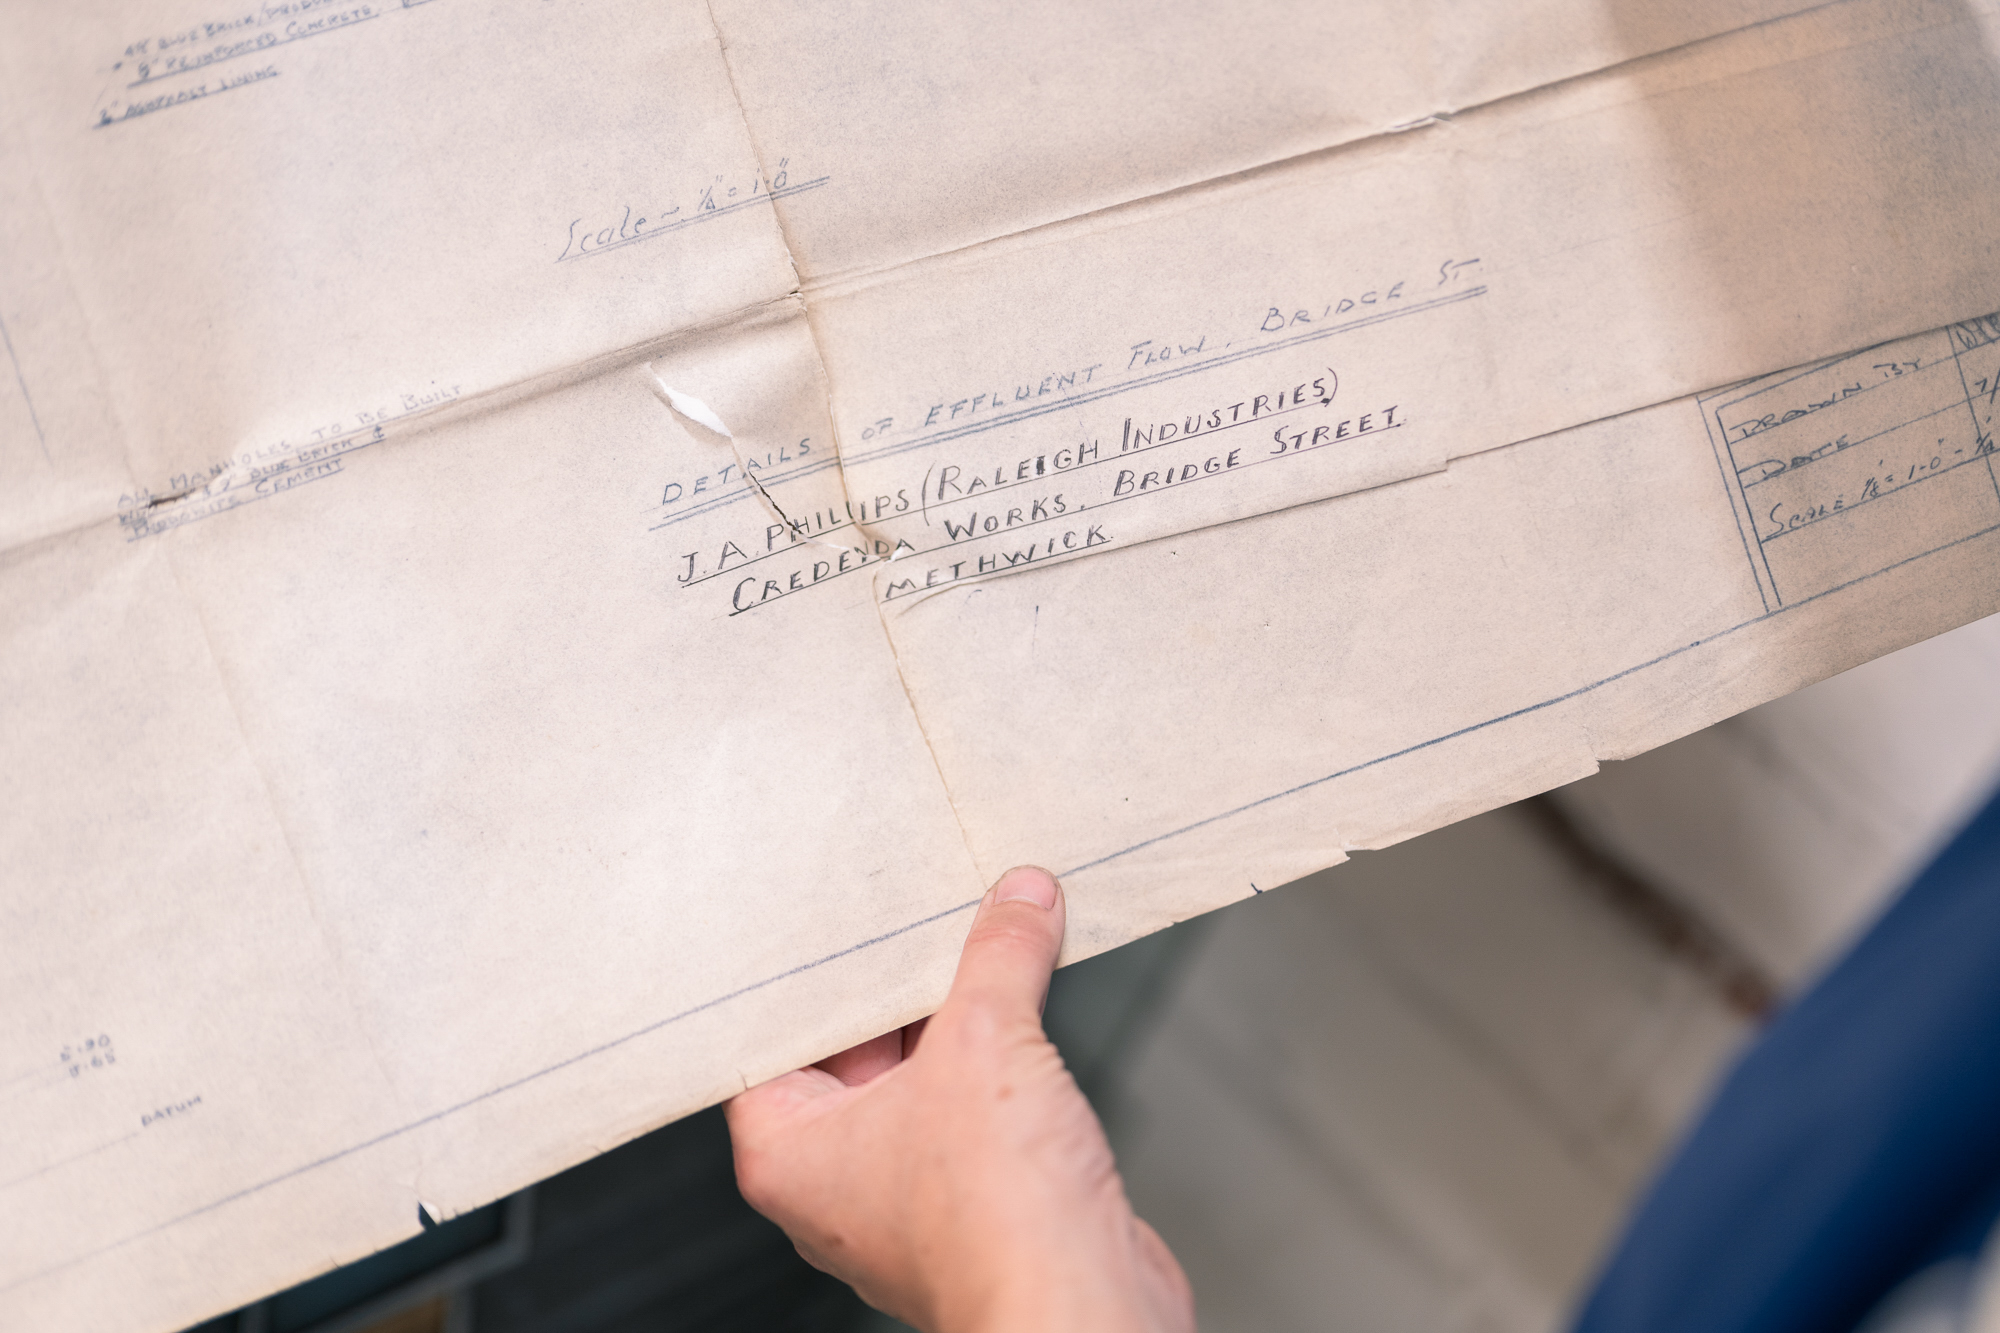 4½" BLUE BRICK/
9" REINFORCED CONCRETE
½" ASPHALT LINING
Scale ~ ¼" = 1'-0"
ALL MANHOLES TO BE BUILT
BLUE BRICK &
CEMENT
DETAILS OF EFFLUENT FLOW, BRIDGE ST.
J. A. PHILLIPS (RALEIGH INDUSTRIES)
CREDENDA WORKS. BRIDGE STREET.
METHWICK.
DRAWN BY
DATE
SCALE ⅛" = 1'-0"
DATUM